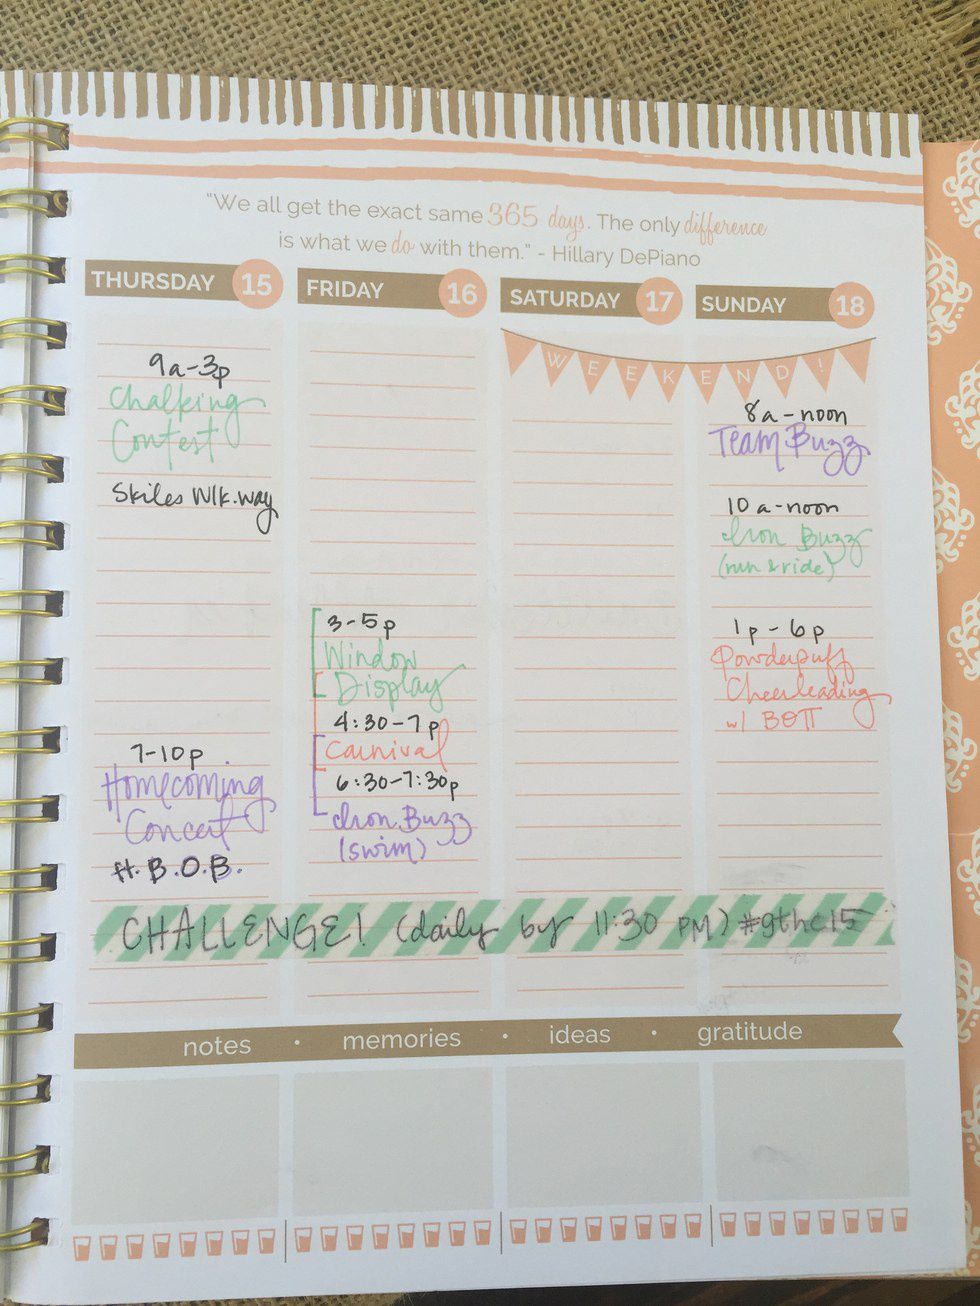 "We all get the exact same 365 days. The only difference
is what we do with them." - Hillary DePiano
THURSDAY 15
9a-3p
Chalking
Contest
Skiles Wlk.way
7-10p
Homecoming
Concert
ft. B.O.B.
FRIDAY 16
3-5p
Window
Display
4:30-7p
Carnival
6:30-7:30p
Iron Buzz
(swim)
SATURDAY 17
SUNDAY 18
WEEKEND!
8a-noon
Team Buzz
10a-noon
Iron Buzz
(run & ride)
1p-6p
Powderpuff
Cheerleading
w/ BΘΠ
CHALLENGE! (daily by 11:30 PM) #gthc15
notes • memories • ideas • gratitude